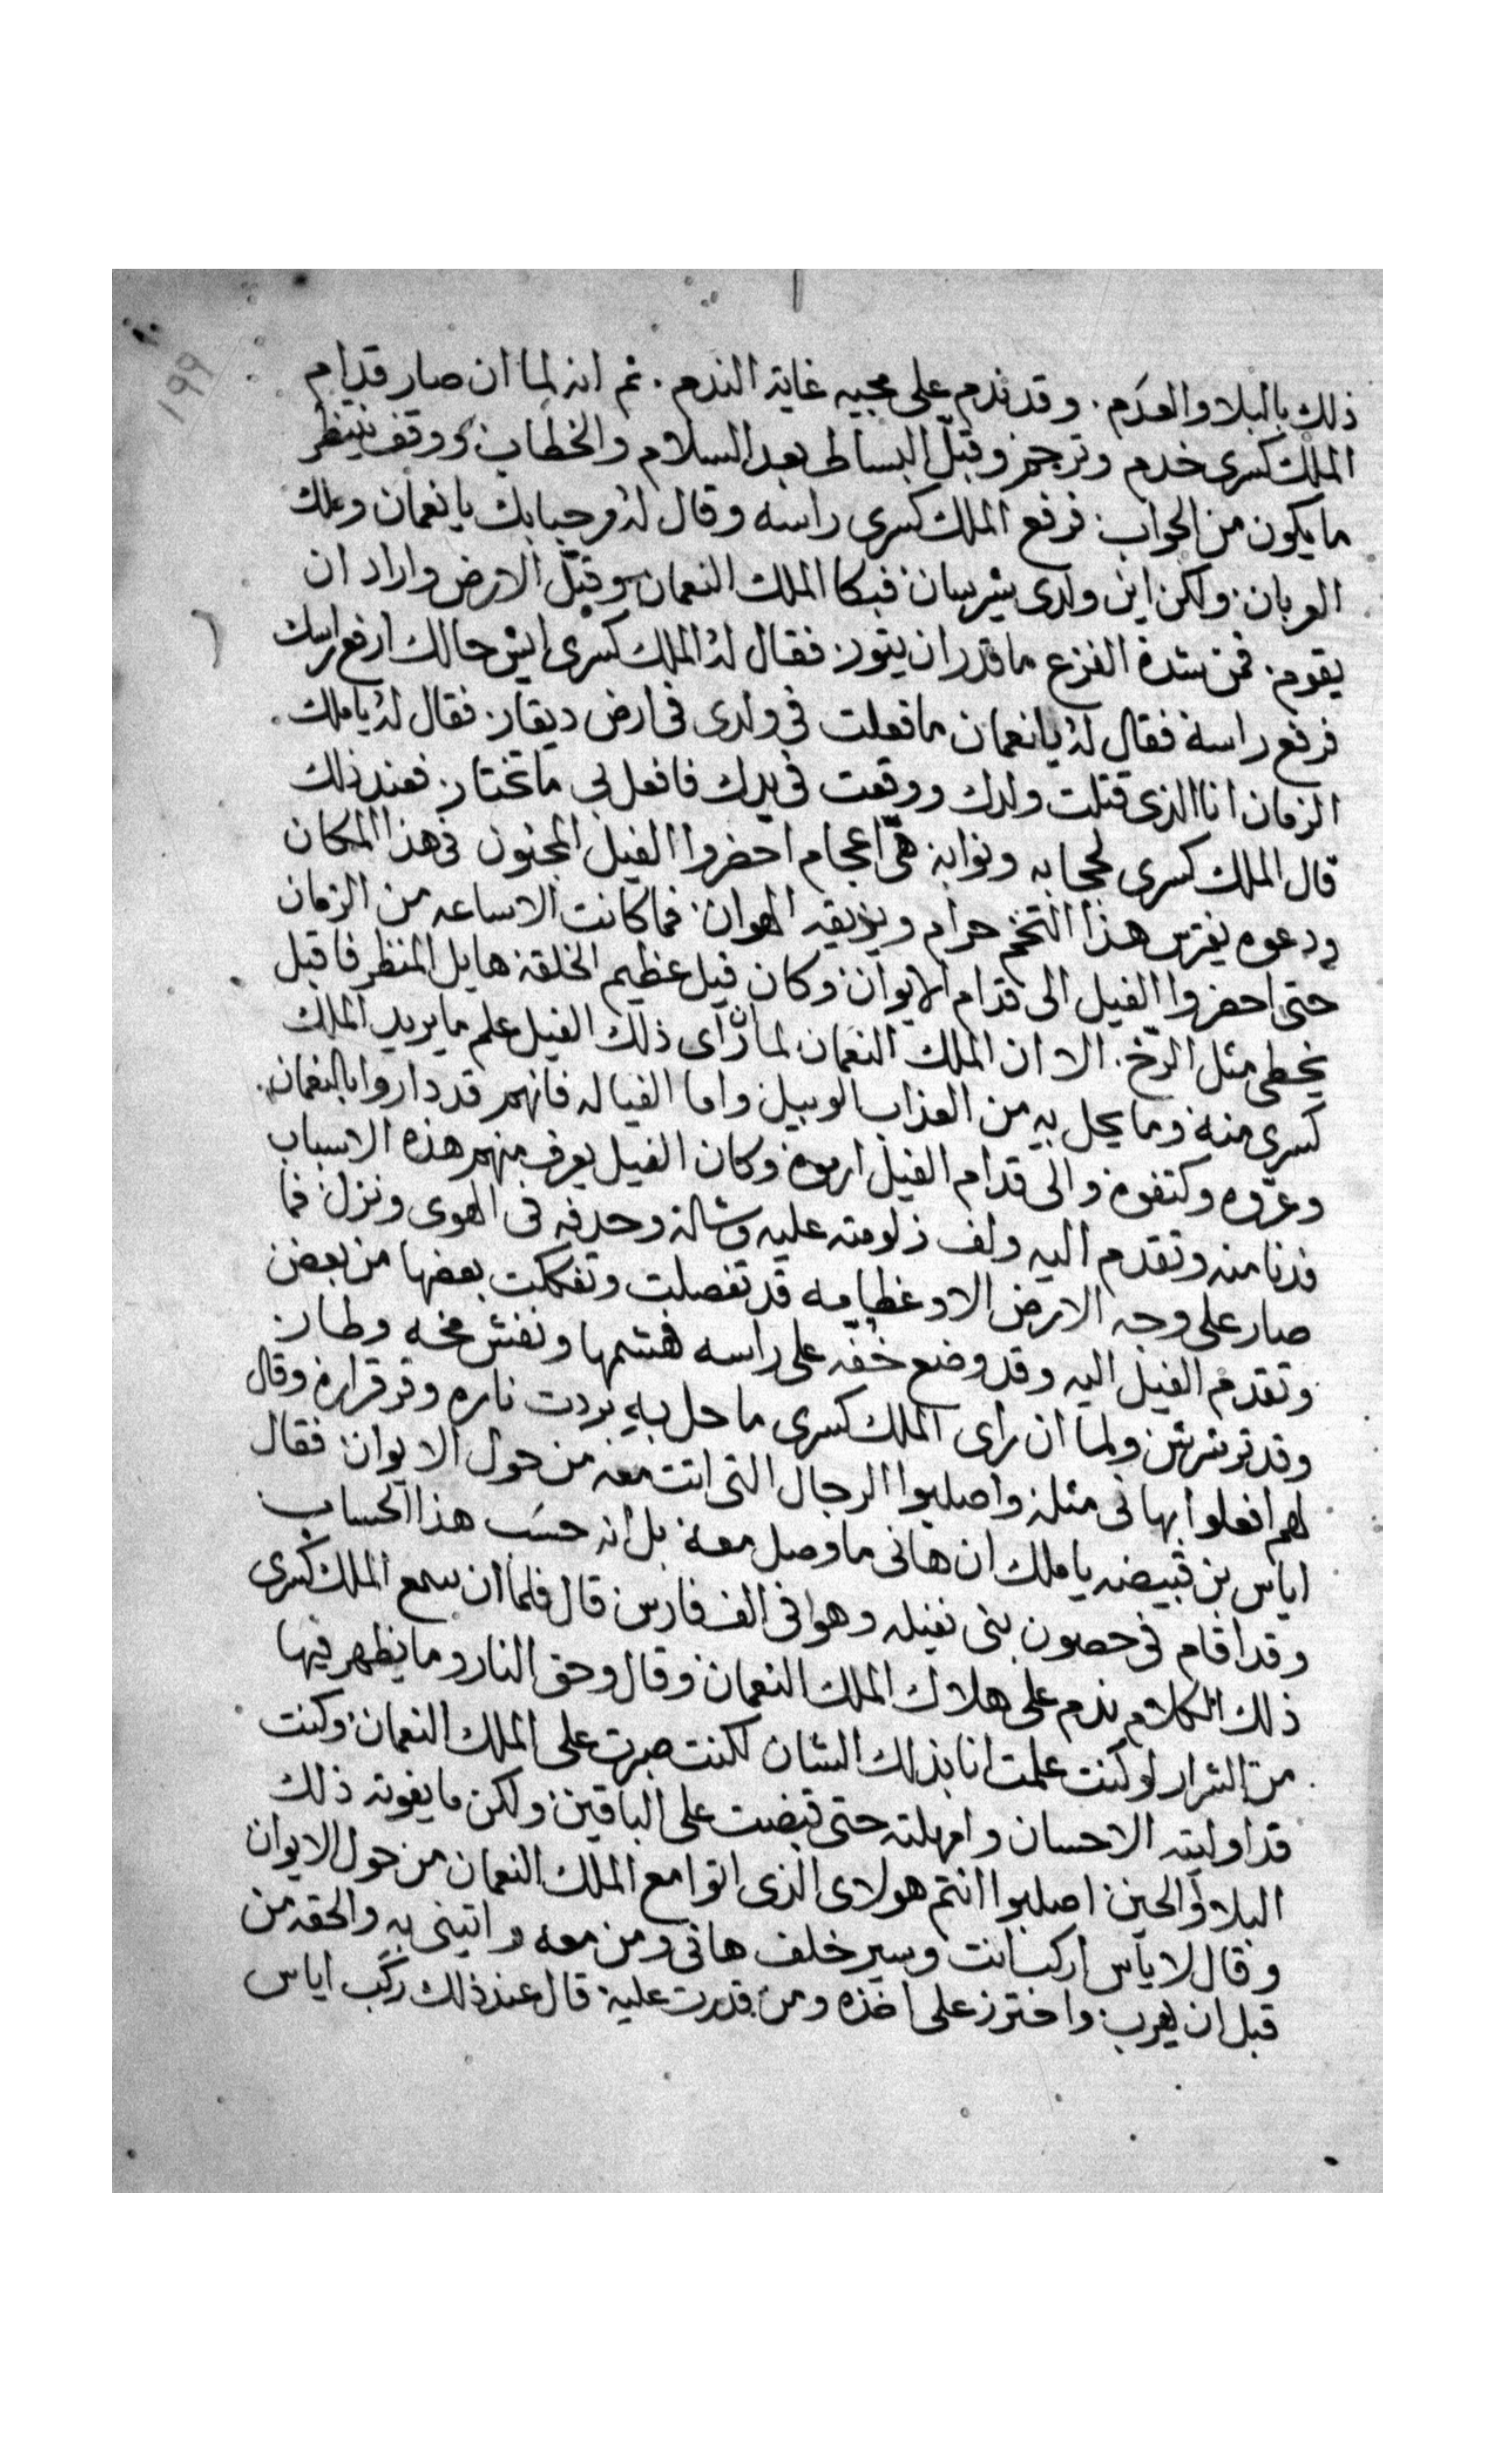 ١٩٩
ذلك بالبلا والعدم. وقد ندم على مجيه غاية الندم. ثم انه لما ان صار قدام
الملك كسرى خدم وترجم وقبّل البساط بعد السلام والخطاب ووقف ينتظر
ما يكون من الجواب فرفع الملك كسرى راسه وقال له مرحبا بك يا نعمان وملك
العربان ولكن اين ولدى شيرسان فبكا الملك النعمان وقبّل الارض واراد ان
يقوم. فمن شدة الفزع ما قدر ان يثور. فقال له الملك كسرى ايش حالك ارفع راسك
فرفع راسه فقال له يا نعمان ما فعلت فى ولدى فى ارض ديقار. فقال له يا ملك
الزمان انا الذى قتلت ولدك ووقعت فى يدك فافعل بى ما تختار. فعند ذلك
قال الملك كسرى لحجابه ونوابه هىّ اعجام احضروا الفيل المجنون فى هذا المكان
ودعوه يفترس هذا التخم حرام ويذيقه الهوان فما كانت الا ساعه من الزمان
حتى احضروا الفيل الى قدام الايوان وكان فيل عظيم الخلقة هايل المنظر فاقبل
يخطى مثل الرّخ. الا ان الملك النعمان لما رآى ذلك الفيل علم ما يريد الملك
كسرى منه وما يحل به من العذاب الوبيل واما الفياله فانهم قد داروا بالنعمان.
وعرّوه وكتفوه والى قدام الفيل ارموه وكان الفيل يعرف منهم هذه الاسباب
فدنا منه وتقدم اليه ولف زلومته عليه وشاله وحدفه فى الهوى ونزل فما
صار على وجه الارض الا وعظامه قد تفصلت وتفككت بعضها من بعض
وتقدم الفيل اليه وقد وضع خُفّه على راسه هشمها ونفش مخه وطار
وقد ولما ان راى الملك كسرى ما حل به بردت ناره وقر قراره وقال
لهم افعلوا بهانى مثله واصلبوا الرجال التى اتت معه من حول الايوان فقال
اياس بن قبيضه يا ملك ان هانى ما وصل معه بل انه حسب هذا الحساب
وقد اقام فى حصون بنى نفيله وهوا فى الف فارس قال فلما ان سمع الملك كسرى
ذلك الكلام ندم على هلاك الملك النعمان وقال وحق النار وما يظهر فيها
من الشرار لو كنت علمت انا بذلك الشان لكنت صبرت على الملك النعمان وكنت
قد اوليته الاحسان وامهلته حتى قبضت على الباقين ولكن ما يفوته ذلك
البلا والحين اصلبوا انتم هولاى الذى اتوا مع الملك النعمان من حول الايوان
وقال لاياس اركب انت وسير خلف هانى ومن معه واتينى به والحقه من
قبل ان يهرب واحترز على اخذه ومن قدرت عليه قال عند ذلك ركب اياس